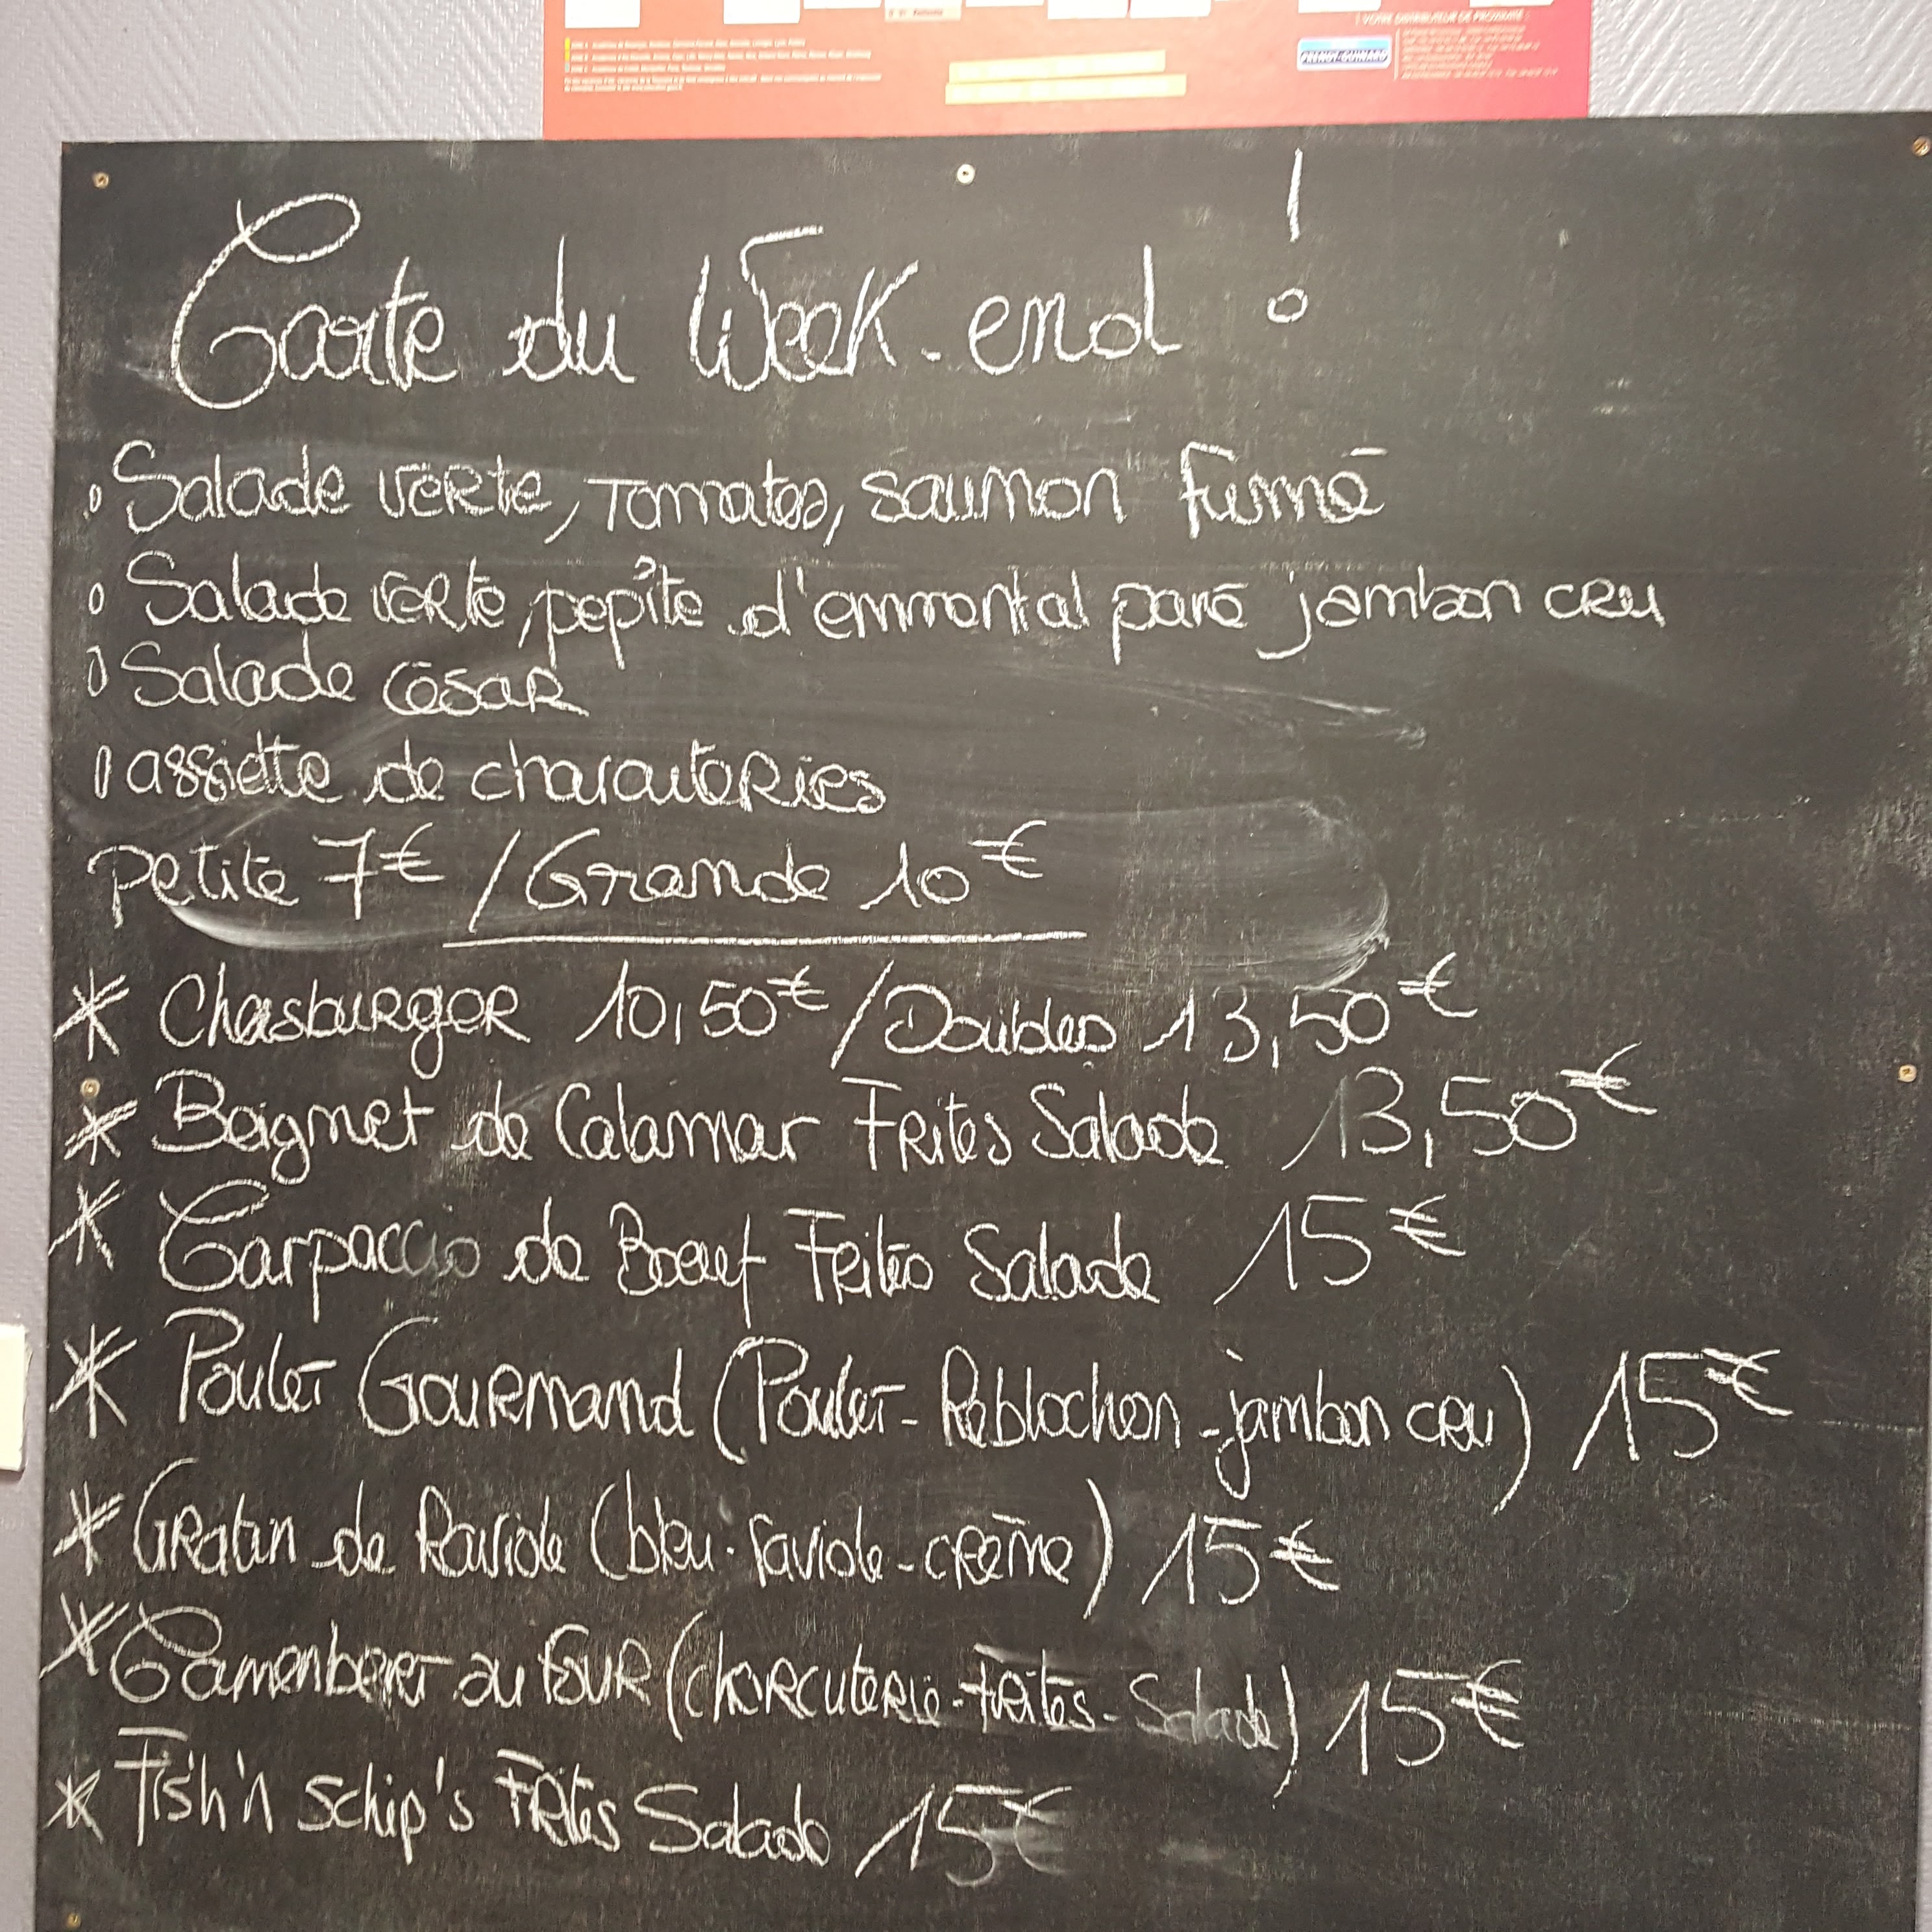 VOTRE DISTRIBUTEUR DE PROXIMITÉ :
PRENOT-GUINARD
Carte du Week-end !
Salade verte, Tomates, saumon Fumé
Salade verte, pepîte d'emmental pané jambon cru
Salade césar
assiette de charcuteries
Petite 7€ / Grande 10€
* Chesburger 10,50€ / Doubles 13,50€
* Beignet de Calamar Frites Salade 13,50€
* Carpaccio de Boeuf Frites Salade 15€
* Poulet Gourmand (Poulet - Reblochon - jambon cru) 15€
* Gratin de Raviole (bleu - raviole - crème) 15€
* Camenbert au four (charcuterie - Frites - Salade) 15€
* Fish'n schip's Frites Salade 15€